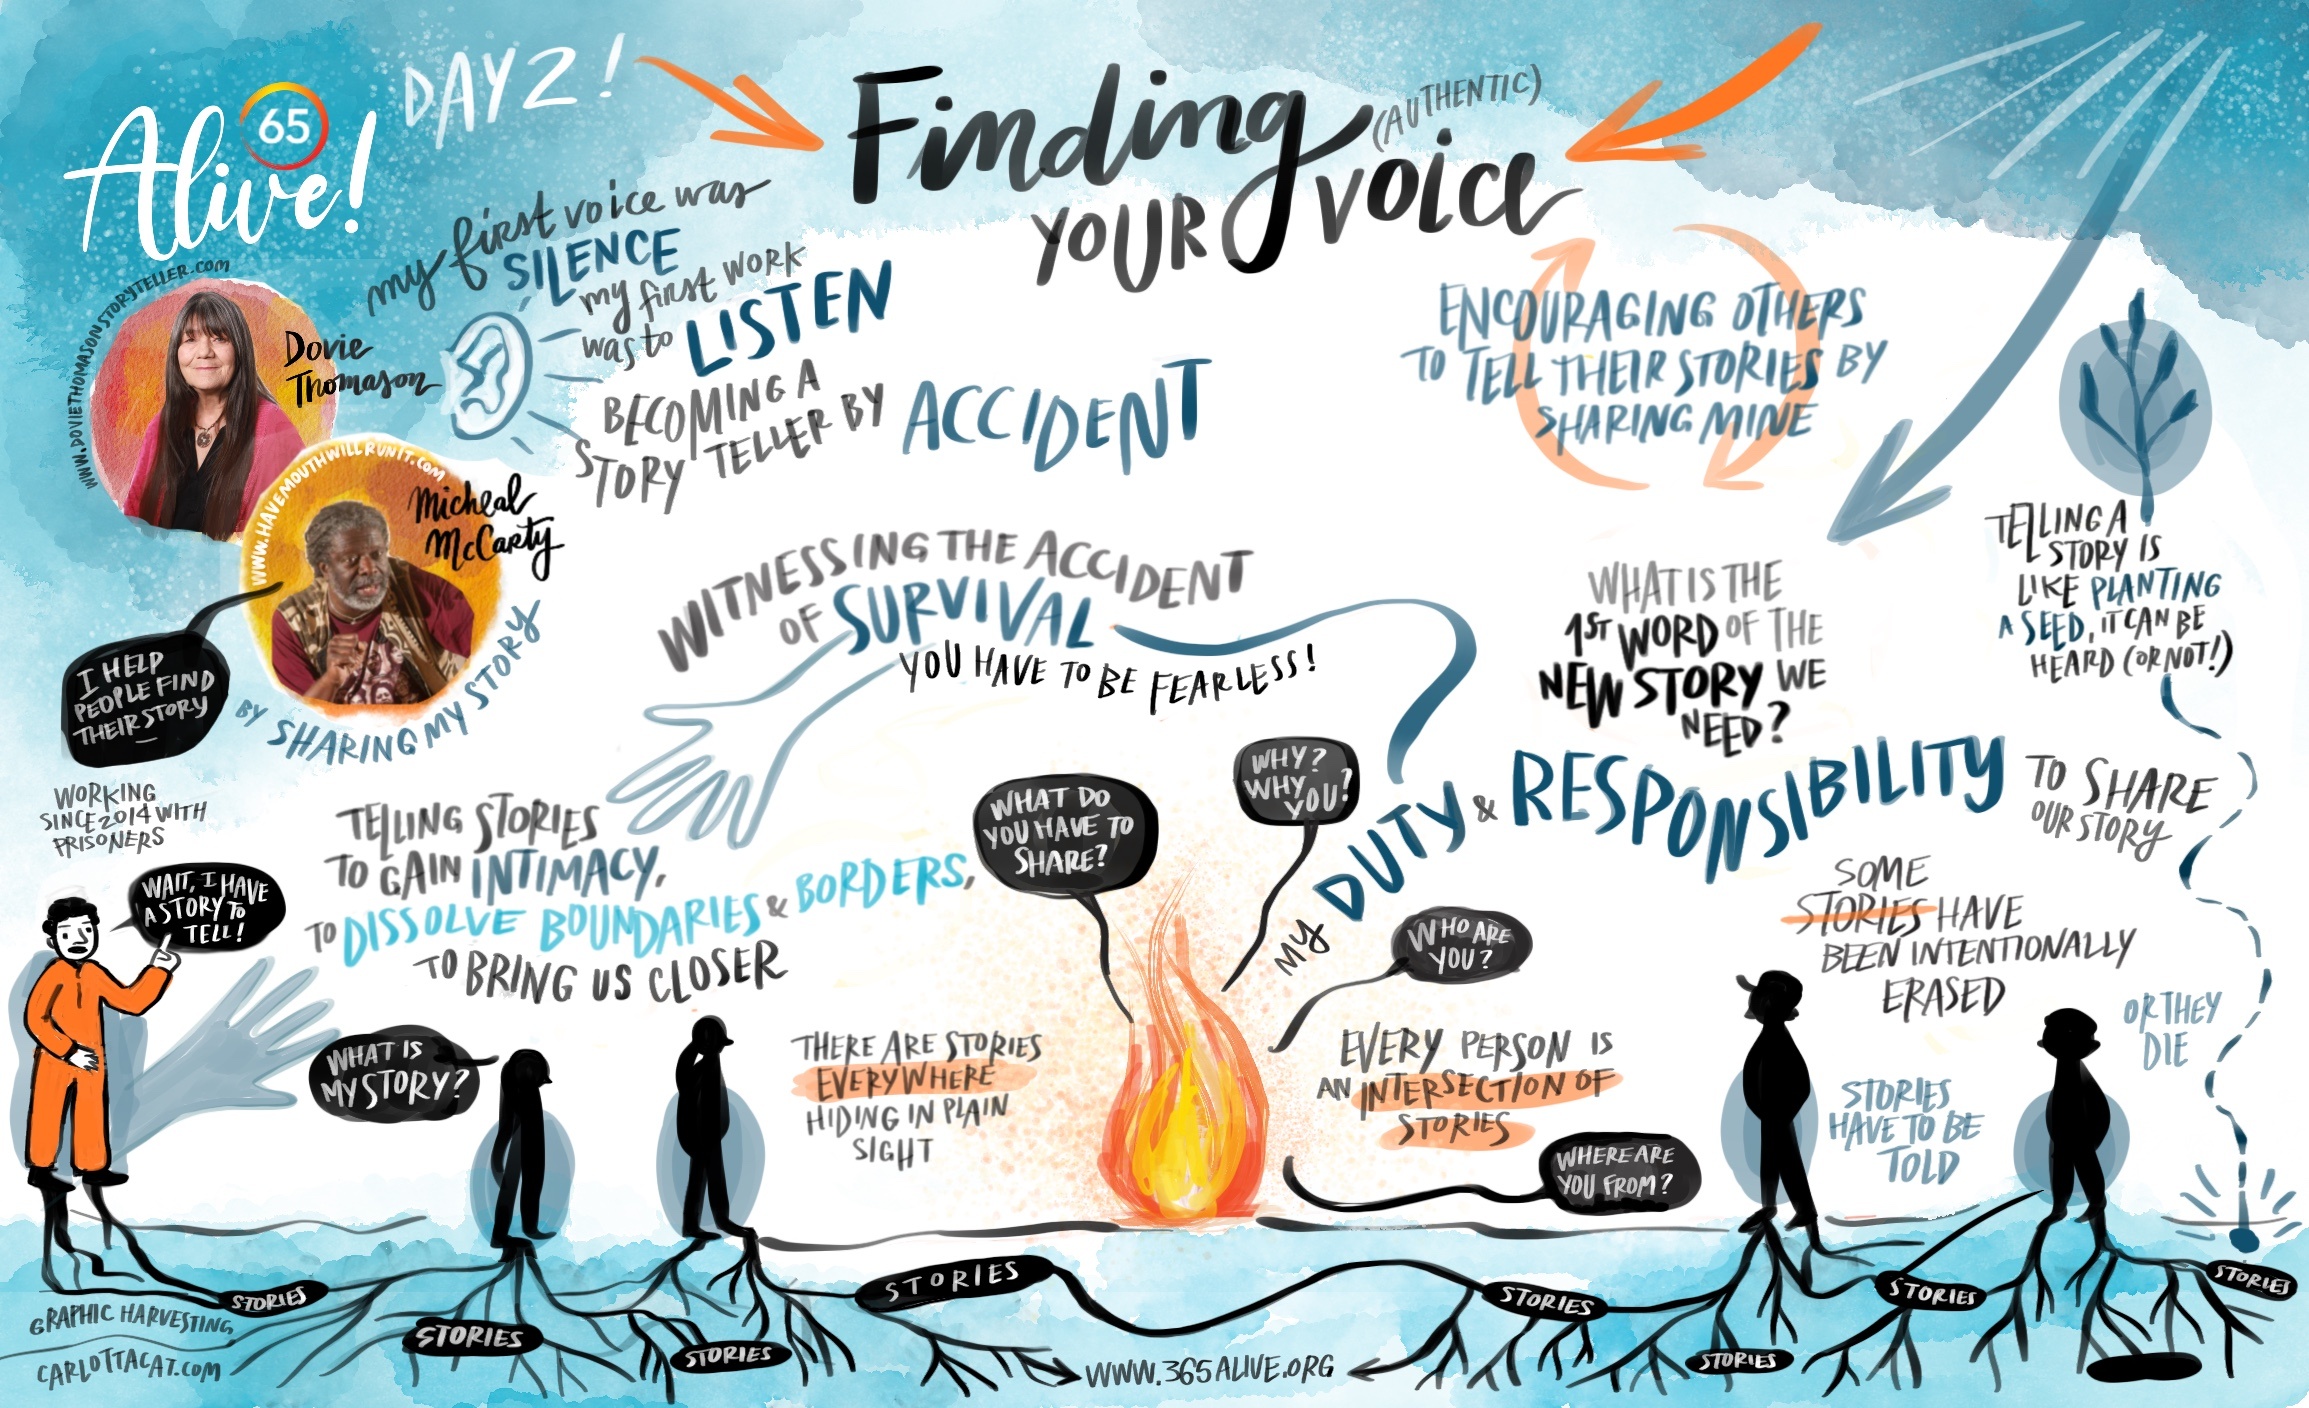 DAY 2!
65
Alive!
Finding
(AUTHENTIC)
YOUR voice
my first voice was
SILENCE
my first WORK
was to LISTEN
BECOMING A
STORY TELLER BY ACCIDENT
WWW.DOVIETHOMASONSTORYTELLER.COM
Dovie
Thomason
WWW.HAVEMOUTHWILLRUNIT.COM
Micheal
McCarty
I HELP
PEOPLE FIND
THEIR STORY
BY SHARING MY STORY
WORKING
SINCE 2014 WITH
PRISONERS
WAIT, I HAVE
A STORY TO
TELL!
WITNESSING THE ACCIDENT
OF SURVIVAL
YOU HAVE TO BE FEARLESS!
TELLING STORIES
TO GAIN INTIMACY,
TO DISSOLVE BOUNDARIES & BORDERS,
TO BRING US CLOSER
ENCOURAGING OTHERS
TO TELL THEIR STORIES BY
SHARING MINE
WHAT IS THE
1ST WORD OF THE
NEW STORY WE
NEED?
TELLING A
STORY IS
LIKE PLANTING
A SEED, IT CAN BE
HEARD (OR NOT!)
MY DUTY & RESPONSIBILITY
TO SHARE
OUR STORY
WHAT DO
YOU HAVE TO
SHARE?
WHY?
WHY
YOU?
WHO ARE
YOU?
WHERE ARE
YOU FROM?
WHAT IS
MY STORY?
THERE ARE STORIES
EVERYWHERE
HIDING IN PLAIN
SIGHT
EVERY PERSON IS
AN INTERSECTION OF
STORIES
SOME
STORIES HAVE
BEEN INTENTIONALLY
ERASED
STORIES
HAVE TO BE
TOLD
OR THEY
DIE
STORIES
STORIES
STORIES
STORIES
STORIES
STORIES
STORIES
STORIES
GRAPHIC HARVESTING
CARLOTTACAT.COM
WWW.365ALIVE.ORG